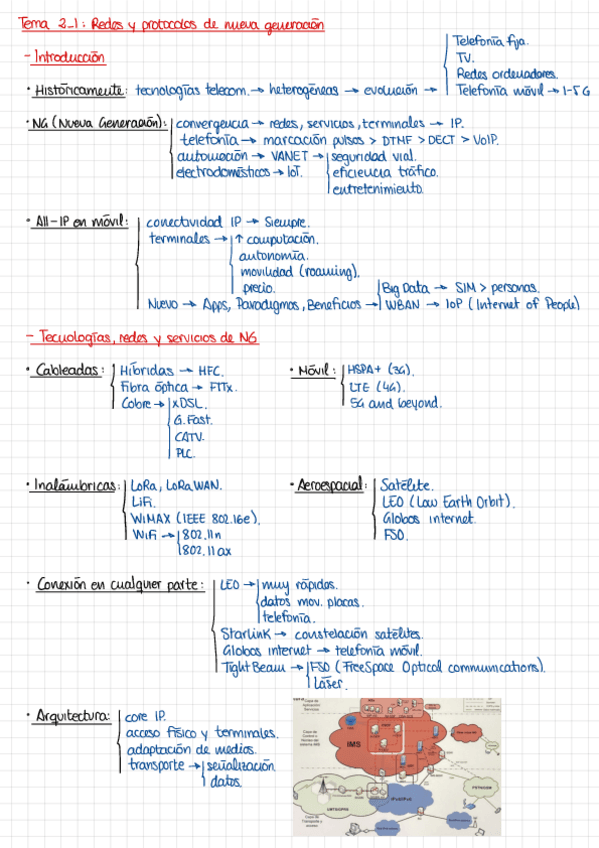 Tema 2_1: Redes y protocolos de nueva generación
- Introducción
Telefonía fija.
TV.
Redes ordenadores.
· Históricamente: tecnologías telecom. → heterogéneas → evolución → Telefonía móvil → 1-5G
· NG (Nueva Generación): convergencia → redes, servicios, terminales → IP.
telefonía → marcación pulsos > DTMF > DECT > VoIP.
automoción → VANET → seguridad vial.
electrodomésticos → IoT. eficiencia tráfico.
entretenimiento.
· All-IP en móvil: conectividad IP → Siempre.
terminales → ↑ computación.
autonomía.
movilidad (roaming).
precio.
Big Data → SIM > personas.
Nuevo → Apps, Paradigmas, Beneficios → WBAN → IoP (Internet of People)
- Tecnologías, redes y servicios de NG
· Cableadas: Híbridas → HFC.
Fibra óptica → FTTx.
Cobre → xDSL.
G.Fast.
CATV.
PLC.
· Móvil: HSPA+ (3G).
LTE (4G).
5G and beyond.
· Inalámbricas: LoRa, LoRaWAN.
LiFi.
WiMAX (IEEE 802.16e).
WiFi → 802.11n
802.11ax
· Aeroespacial: Satélite.
LEO (Low Earth Orbit).
Globos internet.
FSO.
· Conexión en cualquier parte: LEO → muy rápidos.
datos mov. placas.
telefonía.
Starlink → constelación satélites.
Globos internet → telefonía móvil.
Tight Beam → FSO (FreeSpace Optical communications).
Láser.
· Arquitectura: core IP.
acceso físico y terminales.
adaptación de medios.
transporte → señalización.
datos.
Capa de
Aplicación
Servicios
Capa de
Control o
Núcleo del
sistema IMS
IMS
Capa de
Transporte y
acceso